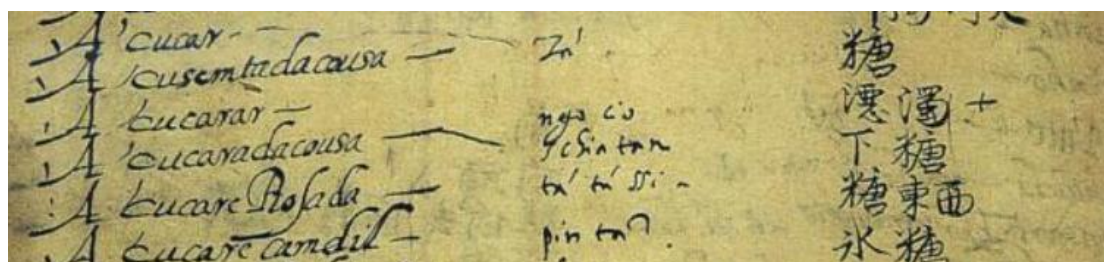 A çucar - Zá. 糖
A çusemtadacousa -
A çucarar - ngo cio 濁 +
A çucaradacousa - y chia tan 下 糖
A çucare Rosada - tá tú ssi - 糖 東西
A çucare camdil - pin tan 氷 糖